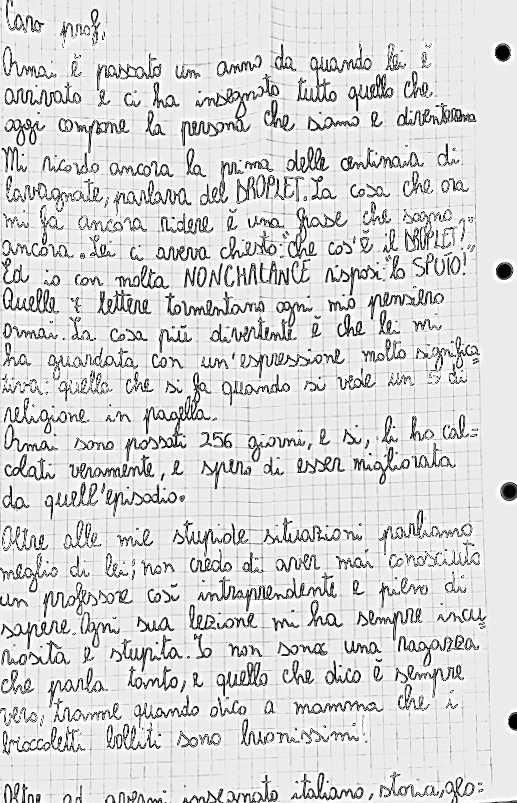 Caro prof,
Ormai è passato un anno da quando lei è
arrivato e ci ha insegnato tutto quello che
oggi compone la persona che siamo e diventeremo
Mi ricordo ancora la prima delle centinaia di
lavagnate, parlava del DROPLET. La cosa che ora
mi fa ancora ridere è una frase che sogno
ancora. Lei ci aveva chiesto: "che cos'è il DROPLET!"
Ed io con molta NONCHALANCE risposi: "lo SPUTO!"
Quelle lettere tormentano ogni mio pensiero
ormai. La cosa più divertente è che lei mi
ha guardata con un'espressione molto significa=
tiva: quella che si fa quando si vede un 5 di
religione in pagella.
Ormai sono passati 256 giorni, e si, li ho cal=
colati veramente, e spero di esser migliorata
da quell'episodio.
Oltre alle mie stupide situazioni parliamo
meglio di lei; non credo di aver mai conosciuto
un professore così intraprendente e pieno di
sapere. Ogni sua lezione mi ha sempre incu=
riosita e stupita. Io non sono una ragazza
che parla tanto, e quello che dico è sempre
vero, tranne quando dico a mamma che i
broccoletti bolliti sono buonissimi!
Oltre ad avermi insegnato italiano, storia, geo=